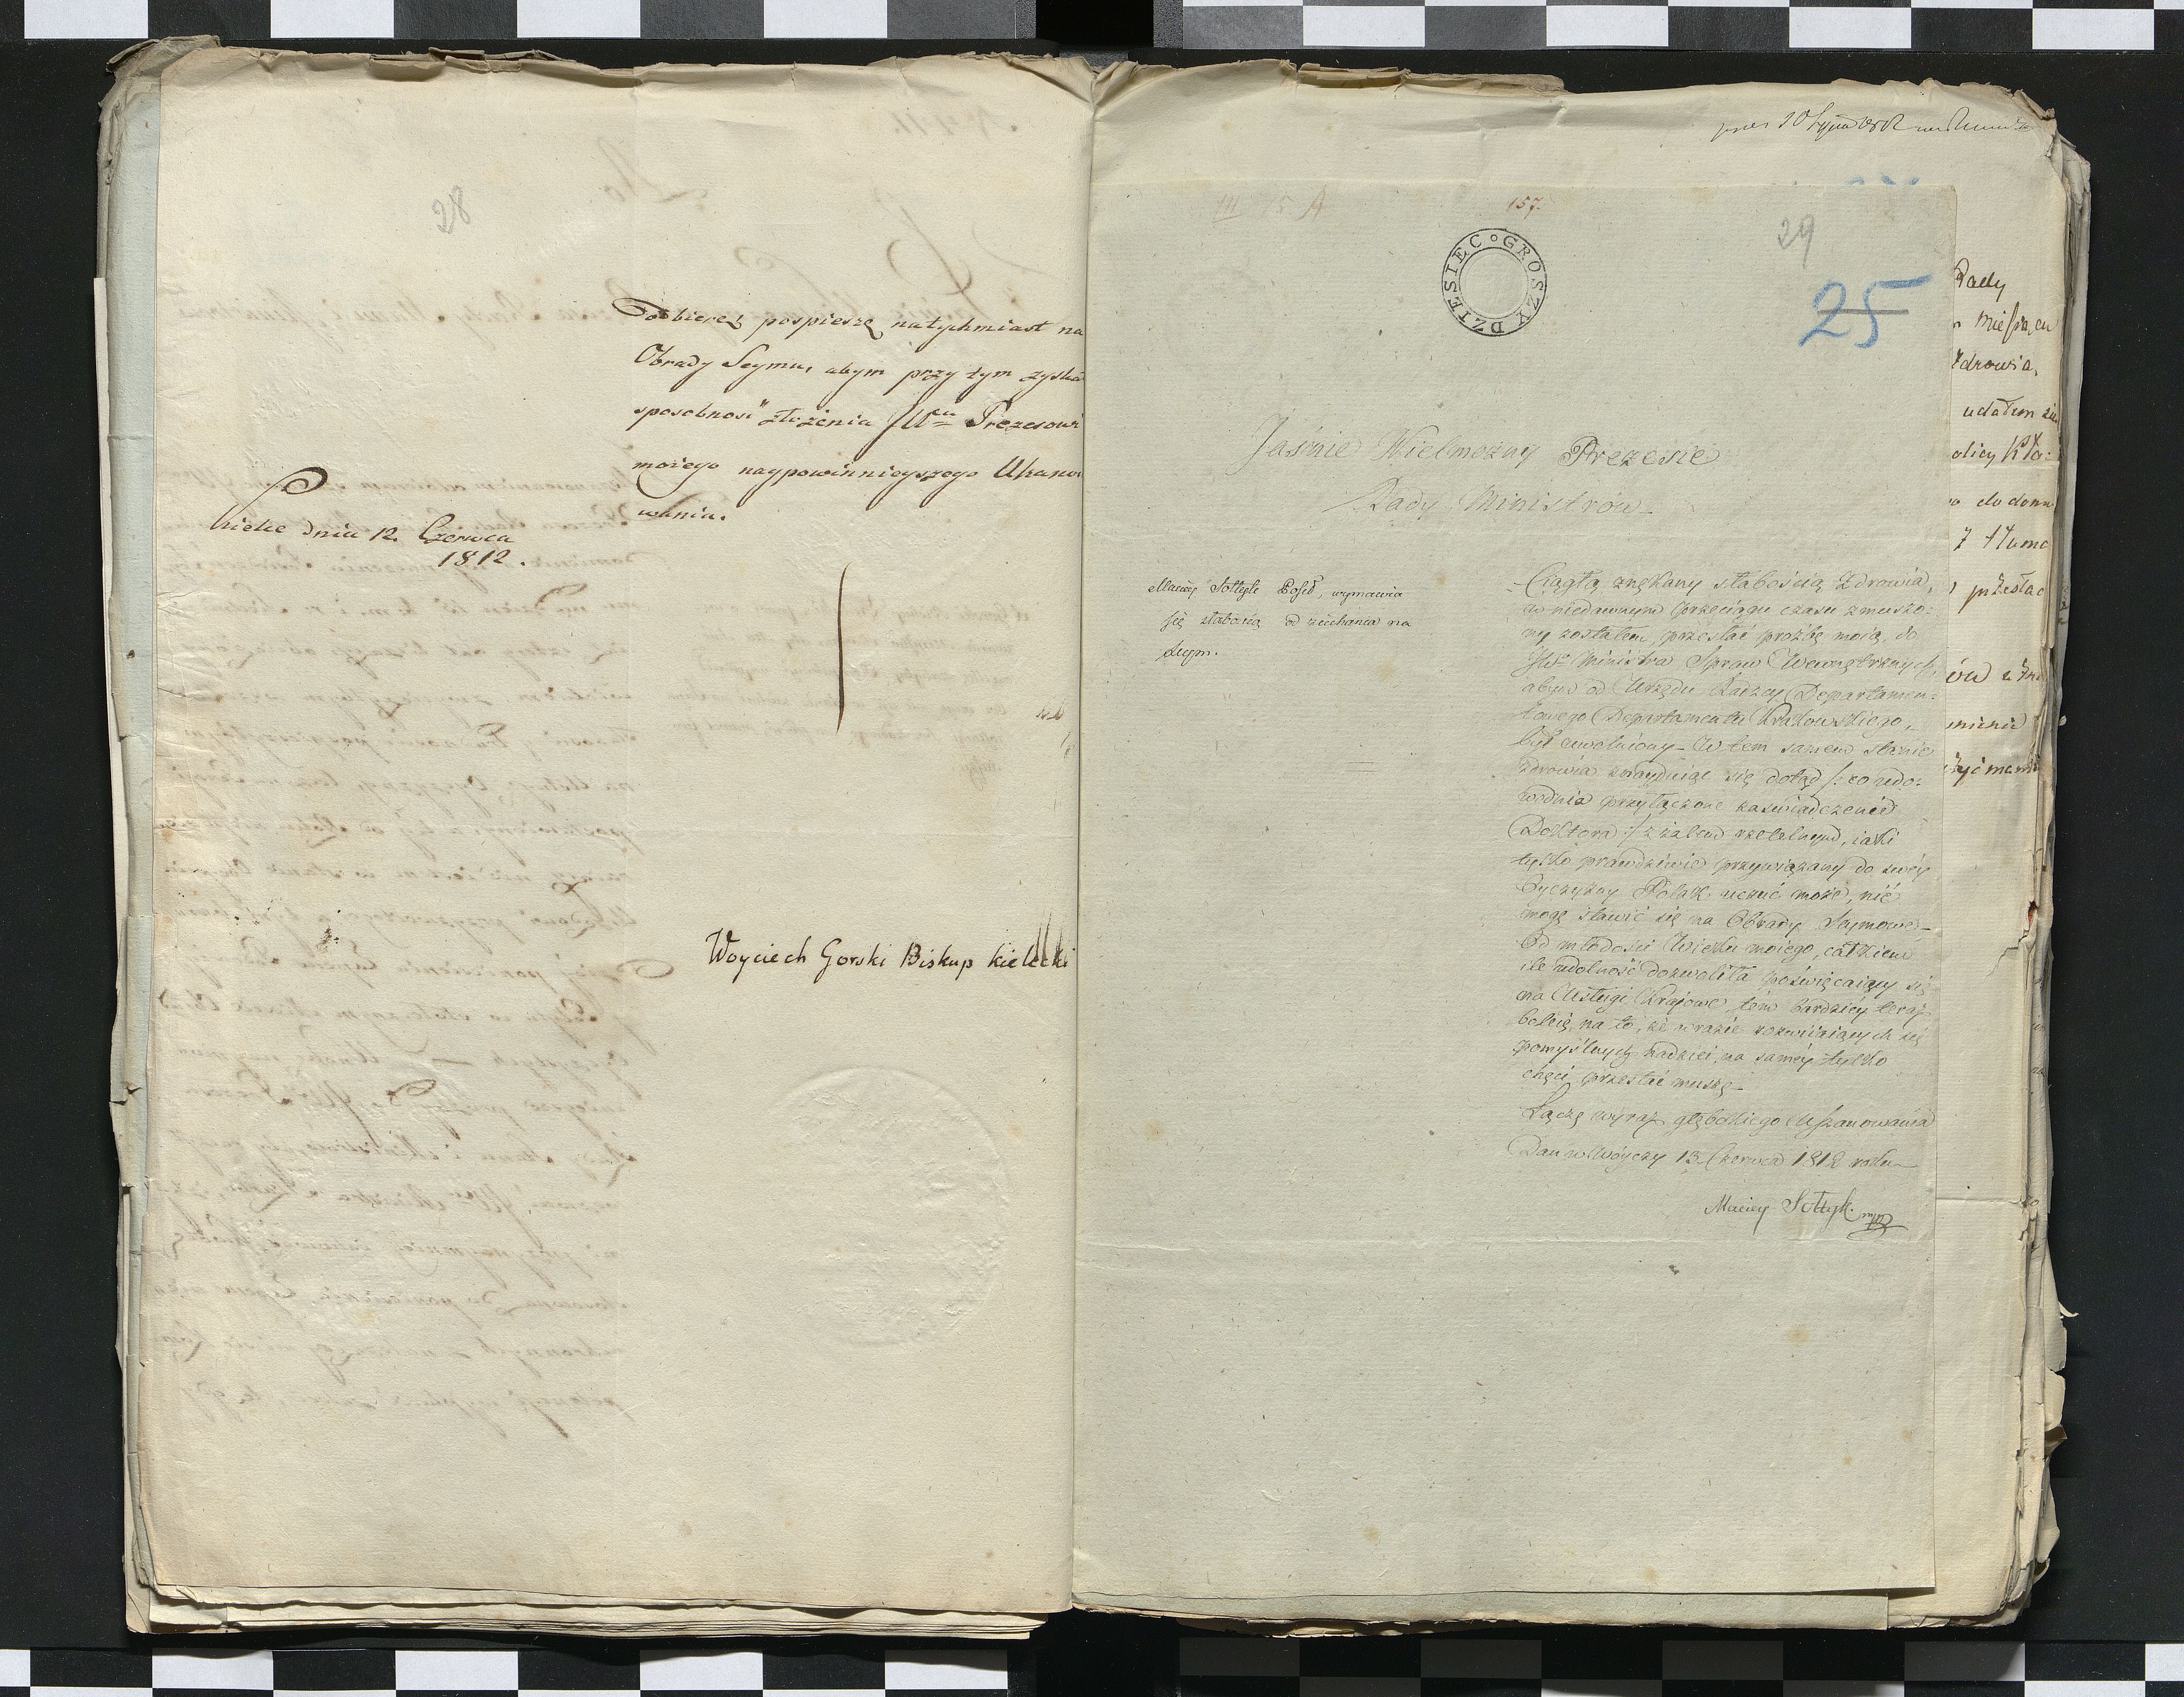 28
odbierę pospieszę natychmiast na
Obrady Seymu, abym przy tym zyskał
sposobność złożenia JWmu Prezesowi
mojego naypowinnieyszego Uszano
wania.
Kielce dnia 12. Czerwca
1812.
Woyciech Gorski Biskup kielecki
157.
III 15 A
29
25
DZIESIEC GROSZY
Jaśnie Wielmożny Prezesie
Rady Ministrów
Maciey Sołtyk Poseł, wymawia
się słabością od ziechania na
Seym.
Ciągłą znękany słabością Zdrowia,
w niedawnym przeciągu czasu zmuszo:
ny zostałem, przesłać prożbę moią, do
JWo Ministra Spraw Wewnętrznych
abym od Urzędu Radzcy Departamen:
towego Departamentu Krakowskiego,
był uwolniony_ W tem samem stanie
Zdrowia znayduiąc się dotąd /: co udo:
wodnia przyłączone zaświadczenie
Doktora :/ z żalem rzetelnym, iaki
tylko prawdziwie przywiązany do swéy
Oyczyzny Polak uczuć może, nie
mogę stawić się na Obrady Seymowe_
Od młodości Wieku moiego, całkiem
ile zdolność dozwoliła poświęcaiący się
na Usługi Krajowe tém bardziéy teraz
boleię, na to, że w razie rozwiiaiących się
pomyślnych nadziei, na saméy tylko
chęci przestać muszę_
Łączę wyraz głębokiego Uszanowania
Dan w Wóyczy 13 Czerwca 1812 roku_
Maciey Sołtyk mp
Rady
Miesiącu
Zdrowia,
udałem się
olicy Kra:
do domu
7 tłuma
przesłać